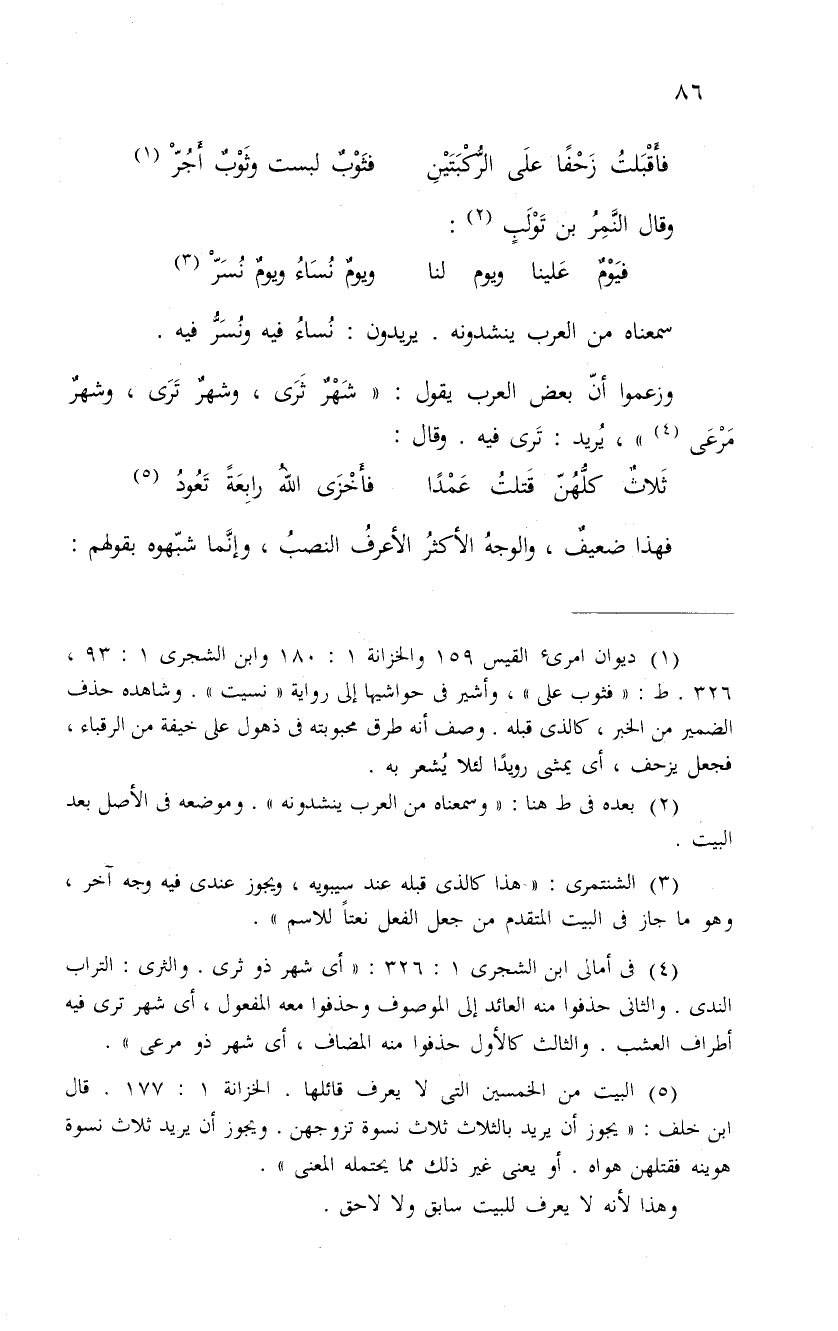 ٨٦
فأَقْبَلتُ زَحْفًا علَى الرُّكْبَتَيْنِ فثَوْبٌ لبست وثَوْبٌ أَجُرّْ (١)
وقال النَّمِرُ بن تَوْلَبٍ (٢) :
فيَوْمٌ عَلينا ويوم لنا ويومٌ نُسَاءُ ويومٌ نُسَرّْ (٣)
سمعناه من العرب ينشدونه . يريدون : نُساءُ فيه ونُسَرُّ فيه .
وزعموا أنّ بعض العرب يقول : « شَهْرٌ ثَرَى ، وشهرٌ تَرَى ، وشهرٌ
مَرْعَى (٤) » ، يُريد : تَرى فيه . وقال :
ثَلاثٌ كلُّهُنّ قَتلتُ عَمْدًا فأَخْزَى اللهُ رابِعَةً تَعُودُ (٥)
فهذا ضعيفٌ ، والوجهُ الأكثرُ الأعرفُ النصبُ ، وإنَّما شبّهوه بقولهم :
(١) ديوان امرىء القيس ١٥٩ والخزانة ١ : ١٨٠ وابن الشجرى ١ : ٩٣ ،
٣٢٦ . ط : « فثوب على » ، وأشير فى حواشيها إلى رواية « نسيت » . وشاهده حذف
الضمير من الخبر ، كالذى قبله . وصف أنه طرق محبوبته فى ذهول على خيفة من الرقباء ،
فجعل يزحف ، أى يمشى رويدًا لئلا يُشعر به .
(٢) بعده فى ط هنا : « وسمعناه من العرب ينشدونه » . وموضعه فى الأصل بعد
البيت .
(٣) الشنتمرى : « هذا كالذى قبله عند سيبويه ، ويجوز عندى فيه وجه آخر ،
وهو ما جاز فى البيت المتقدم من جعل الفعل نعتاً للاسم » .
(٤) فى أمالى ابن الشجرى ١ : ٣٢٦ : « أى شهر ذو ثرى . والثرى : التراب
الندى . والثانى حذفوا منه العائد إلى الموصوف وحذفوا معه المفعول ، أى شهر ترى فيه
أطراف العشب . والثالث كالأول حذفوا منه المضاف ، أى شهر ذو مرعى » .
(٥) البيت من الخمسين التى لا يعرف قائلها . الخزانة ١ : ١٧٧ . قال
ابن خلف : « يجوز أن يريد بالثلاث ثلاث نسوة تزوجهن . ويجوز أن يريد ثلاث نسوة
هوينه فقتلهن هواه . أو يعنى غير ذلك مما يحتمله المعنى » .
وهذا لأنه لا يعرف للبيت سابق ولا لاحق .